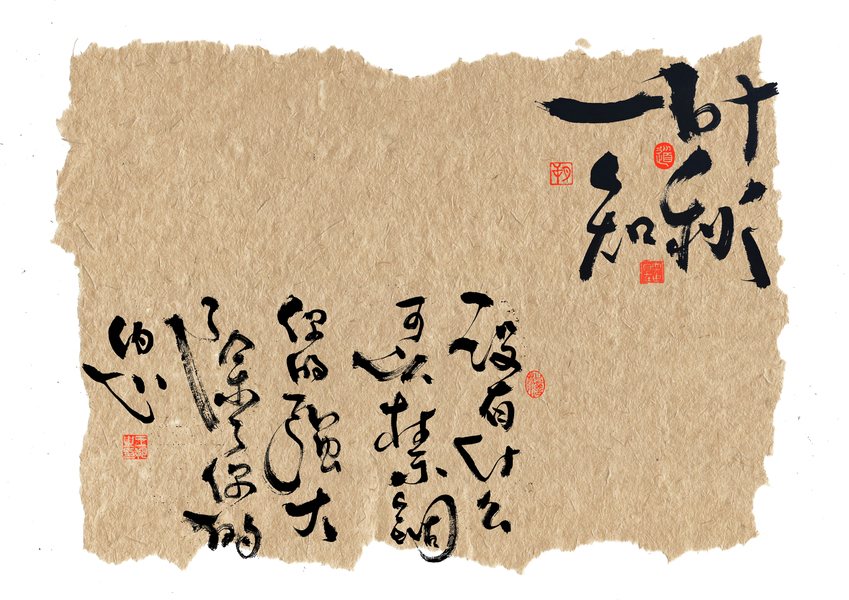 一叶
知秋
没有什么
可以禁錮
你的强大
除了你的
内心